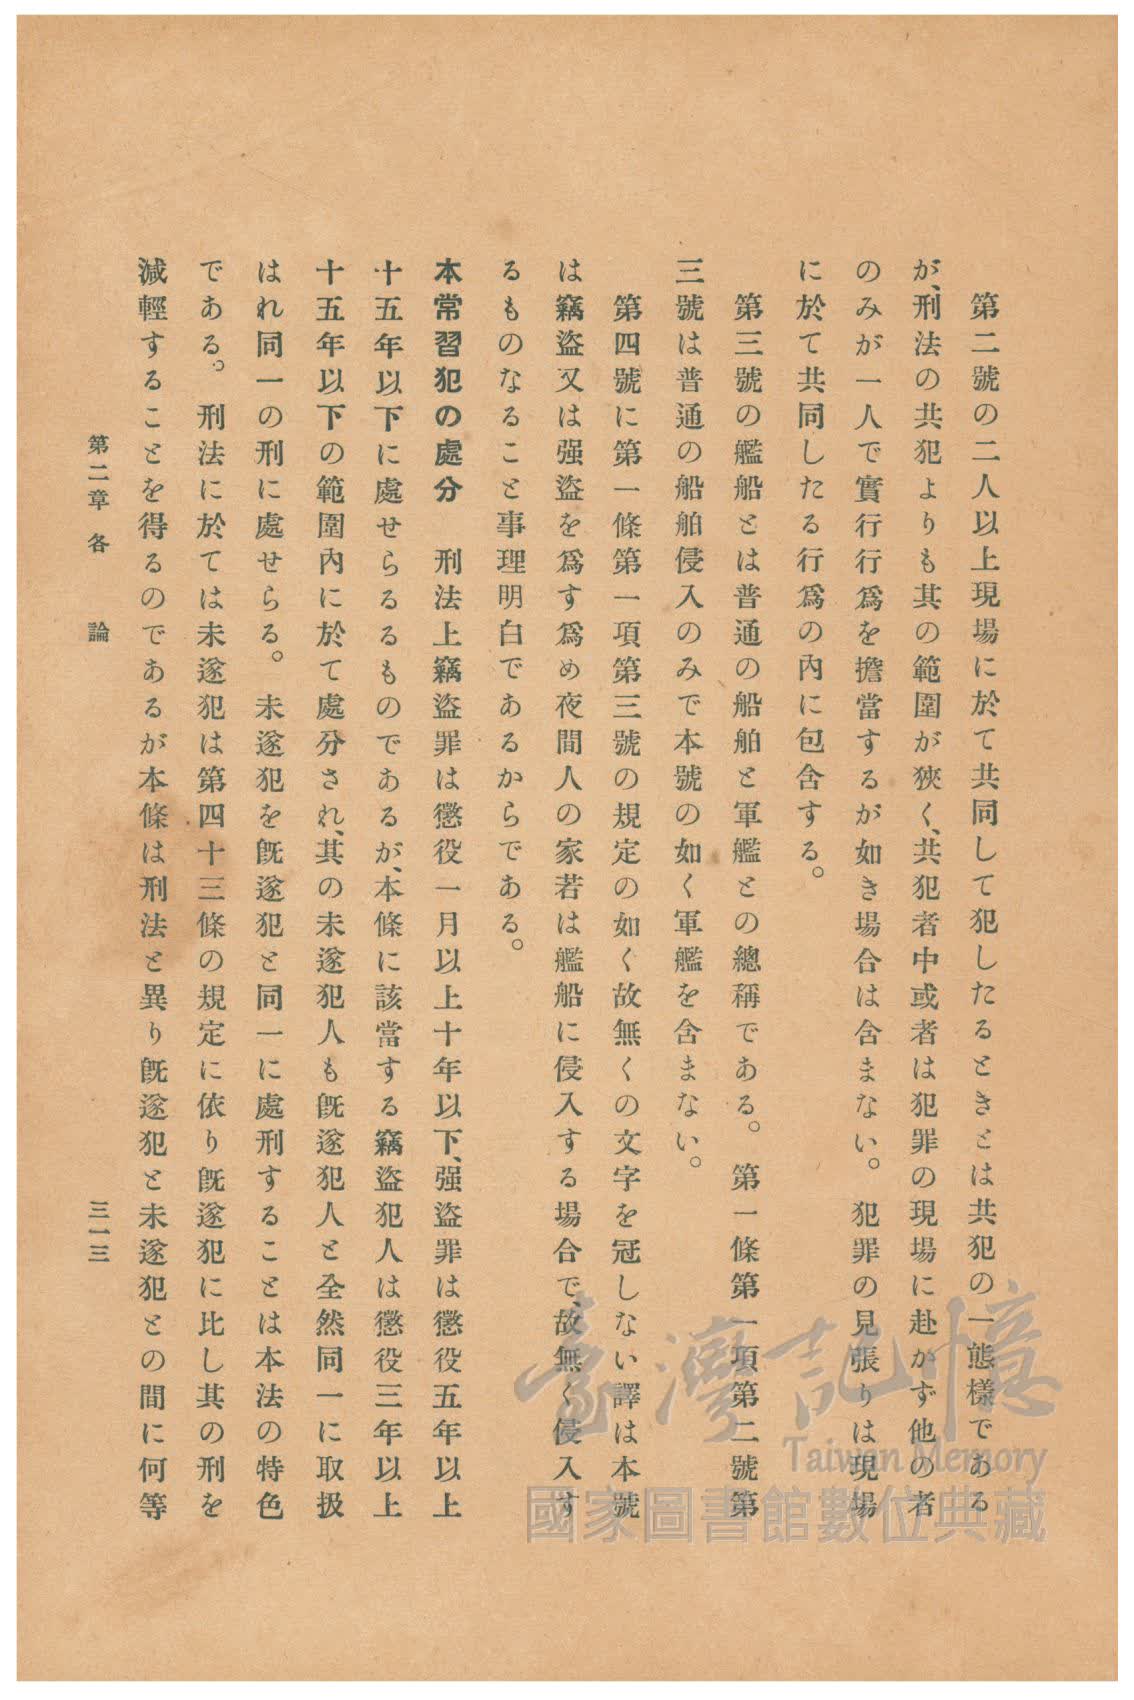 第二號の二人以上現場に於て共同して犯したるときとは共犯の一態樣である
が、刑法の共犯よりも其の範圍が狹く、共犯者中或者は犯罪の現場に赴かず他の者
のみが一人で實行行爲を擔當するが如き場合は含まない。犯罪の見張りは現場
に於て共同したる行爲の內に包含する。
第三號の艦船とは普通の船舶と軍艦との總稱である。第一條第一項第二號第
三號は普通の船舶侵入のみで本號の如く軍艦を含まない。
第四號に第一條第一項第三號の規定の如く故無くの文字を冠しない譯は本號
は竊盜又は强盜を爲す爲め夜間人の家若は艦船に侵入する場合で、故無く侵入す
るものなること事理明白であるからである。
本常習犯の處分 刑法上竊盜罪は懲役一月以上十年以下、强盜罪は懲役五年以上
十五年以下に處せらるるものであるが、本條に該當する竊盜犯人は懲役三年以上
十五年以下の範圍內に於て處分され、其の未遂犯人も旣遂犯人と全然同一に取扱
はれ同一の刑に處せらる。未遂犯を旣遂犯と同一に處刑することは本法の特色
である。刑法に於ては未遂犯は第四十三條の規定に依り旣遂犯に比し其の刑を
減輕することを得るのであるが本條は刑法と異り旣遂犯と未遂犯との間に何等
第二章 各論 三一三
臺灣記憶
Taiwan Memory
國家圖書館數位典藏